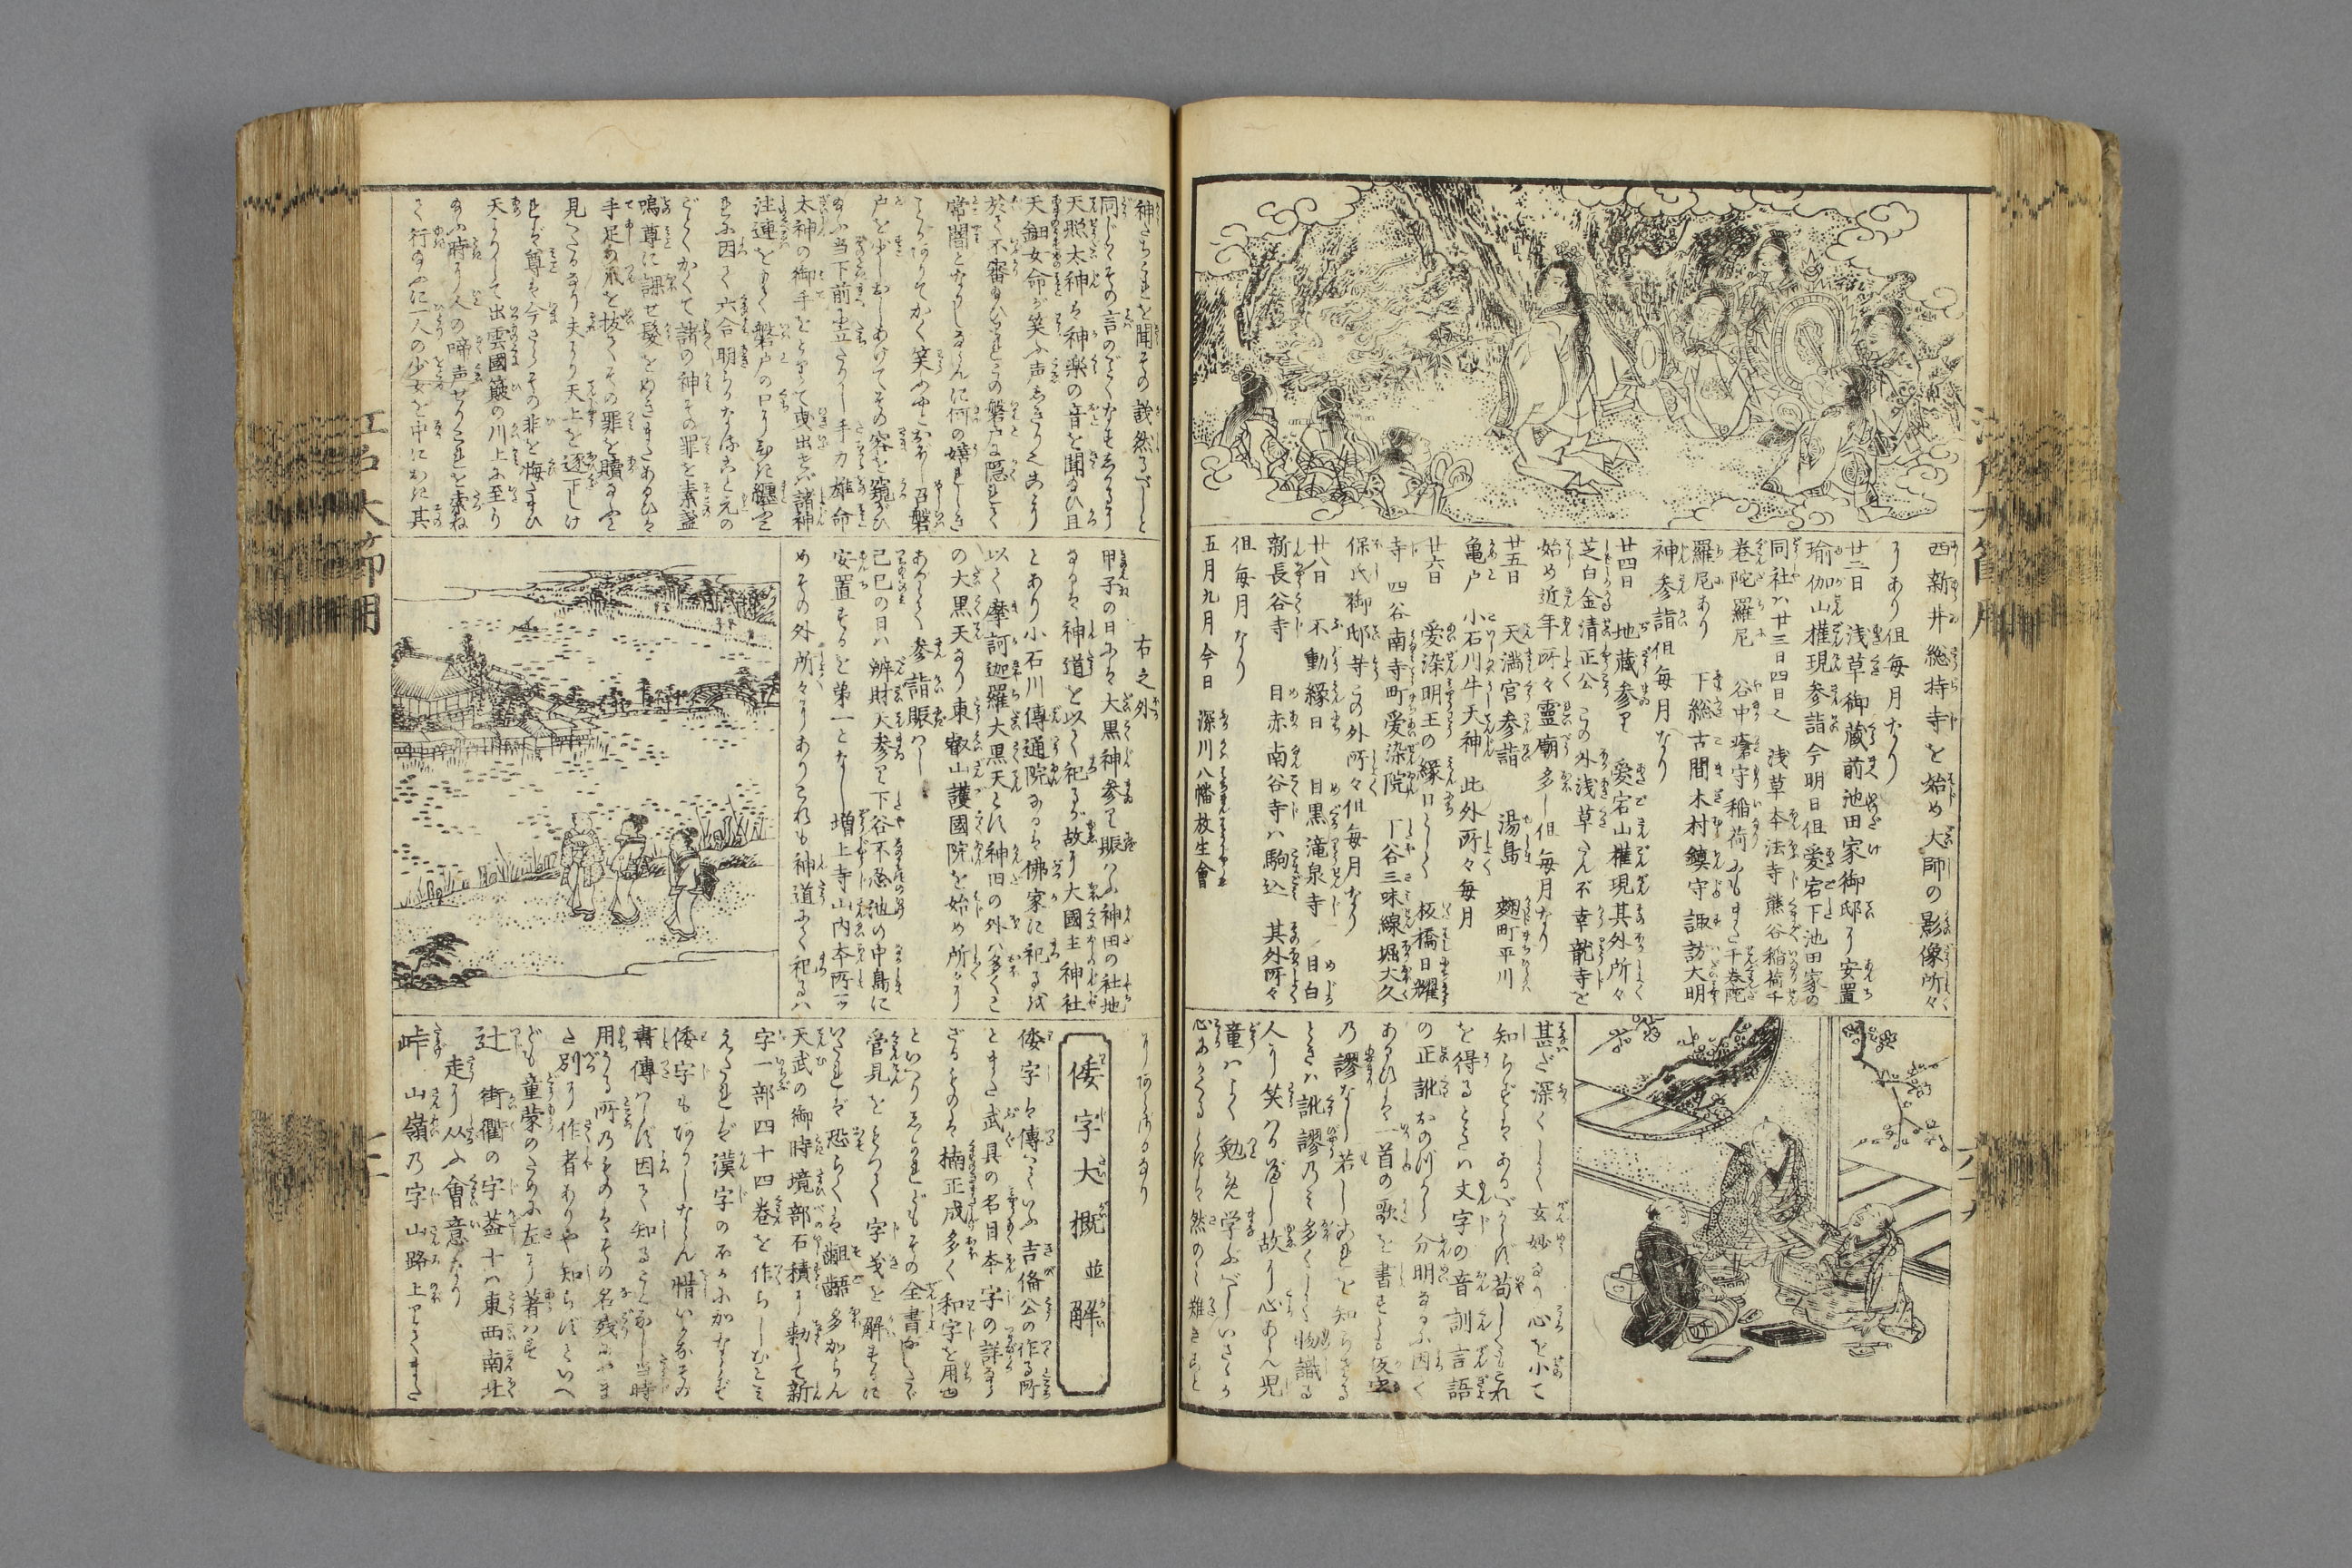 西新井総持寺を始め大師の影像所々
にあり但毎月なり
廿二日　浅草御蔵前池田家御邸に安置
瑜伽山権現参詣今明日但愛宕下池田家の
同社ハ廿三日四日也　浅草本法寺熊谷稲荷千
巻陀羅尼　谷中瘡守稲荷にもまた千巻陀
羅尼あり　下総古間木村鎮守諏訪大明
神参詣但毎月なり
廿四日　地蔵参り　愛宕山権現其外所々
芝白金清正公　この外浅草さんや幸龍寺を
始め近年所々霊廟多し但毎月なり
廿五日　天満宮参詣　湯島　麹町平川
亀戸　小石川牛天神　此外所々毎月
廿六日　愛染明王の縁日として　板橋日曜
寺　四谷南寺町愛染院　下谷三味線堀大久
保氏御邸等この外所々但毎月なり
廿八日　不動縁日　目黒滝泉寺　目白
新長谷寺　目赤南谷寺ハ駒込　其外所々
但毎月なり
五月九月今日　深川八幡放生會
甚だ深くして玄妙なり心を小て
知らずはあるべからず苟しくもこれ
を得るときハ文字の音訓言語
の正訛おのづから分明なるに因て
あるひは一首の歌を書するも仮名
乃謬なし若しこれを知らざる
ときハ訛謬のみ多くして物識る
人に笑はるべし故に心あらん児
童ハよく勉め学ぶべしいさゝか
心あらるゝときは然のみ難きこと
神たちこれを聞その議然るべしと
同じくその言のごくなせるなり
天照太神は神楽の音を聞玉ひ且
天鈿女命が笑ふ声しきりなるに
於て不審玉ひわれこの磐戸に隠れて
常闇となりしならんに何の嬉しき
ことありてかく笑ふやとおぼし召磐
戸を少しおしあけてその容を窺がひ
玉ふ当下前に立たりし手力雄命
太神の御手をとりて曳出せバ諸神
注連をもて磐戸の口に引纏ふ
これに因て六合明らかなること元の
ごとくかくて諸の神その罪を素盞
嗚尊に課せ髪をぬきまたあるひは
手足の爪を抜てその罪を贖ふと
見へたるなり夫より天上を逐下しけ
れば尊も今さらその非を悔たまひ
天よりして出雲國簸の川上に至り
玉ふ時に人の啼声せりこれを索ね
て行玉ふに一人の少女を中におき其
右之外
甲子の日には大黒神参り賑ハふ神田の社地
なるは神道を以て祀るが故に大國主神社
とあり小石川傳通院なるは佛家に祀るを
以て摩訶迦羅大黒天といふ神田の外ハ多くこ
の大黒天なり東叡山護國院を始め所々に
あがめて参詣賑ハし
己巳の日ハ辨財天参り下谷不忍池の中島に
安置するを第一となし増上寺山内本所一ツ
めその外所々にありこれも神道にて祀るハ
にあらざるなり
倭字大概並解
倭字は傳へていふ吉備公の作る所
とまた武具の名目本字の詳なら
ざるものは楠正成多く和字を用ゆ
といへりされどもその全書なしたゞ
管見をもつて字義を解するに
いたれば恐らくは齟齬多からん
天武の御時境部石積に勅して新
字一部四十四巻を作らしむとみ
えたれど漢字の不に加なるべ
倭字も有りしならん惜いかなその
書傳はらず因て知ることなし当時
用うる所のものはその名残にやま
た別に作者ありや知らずといへ
ども童蒙のために左に著はす
辻　街衢の字葢十ハ東西南北
走に从ふ會意なり
峠　山嶺乃字山路上りてまた